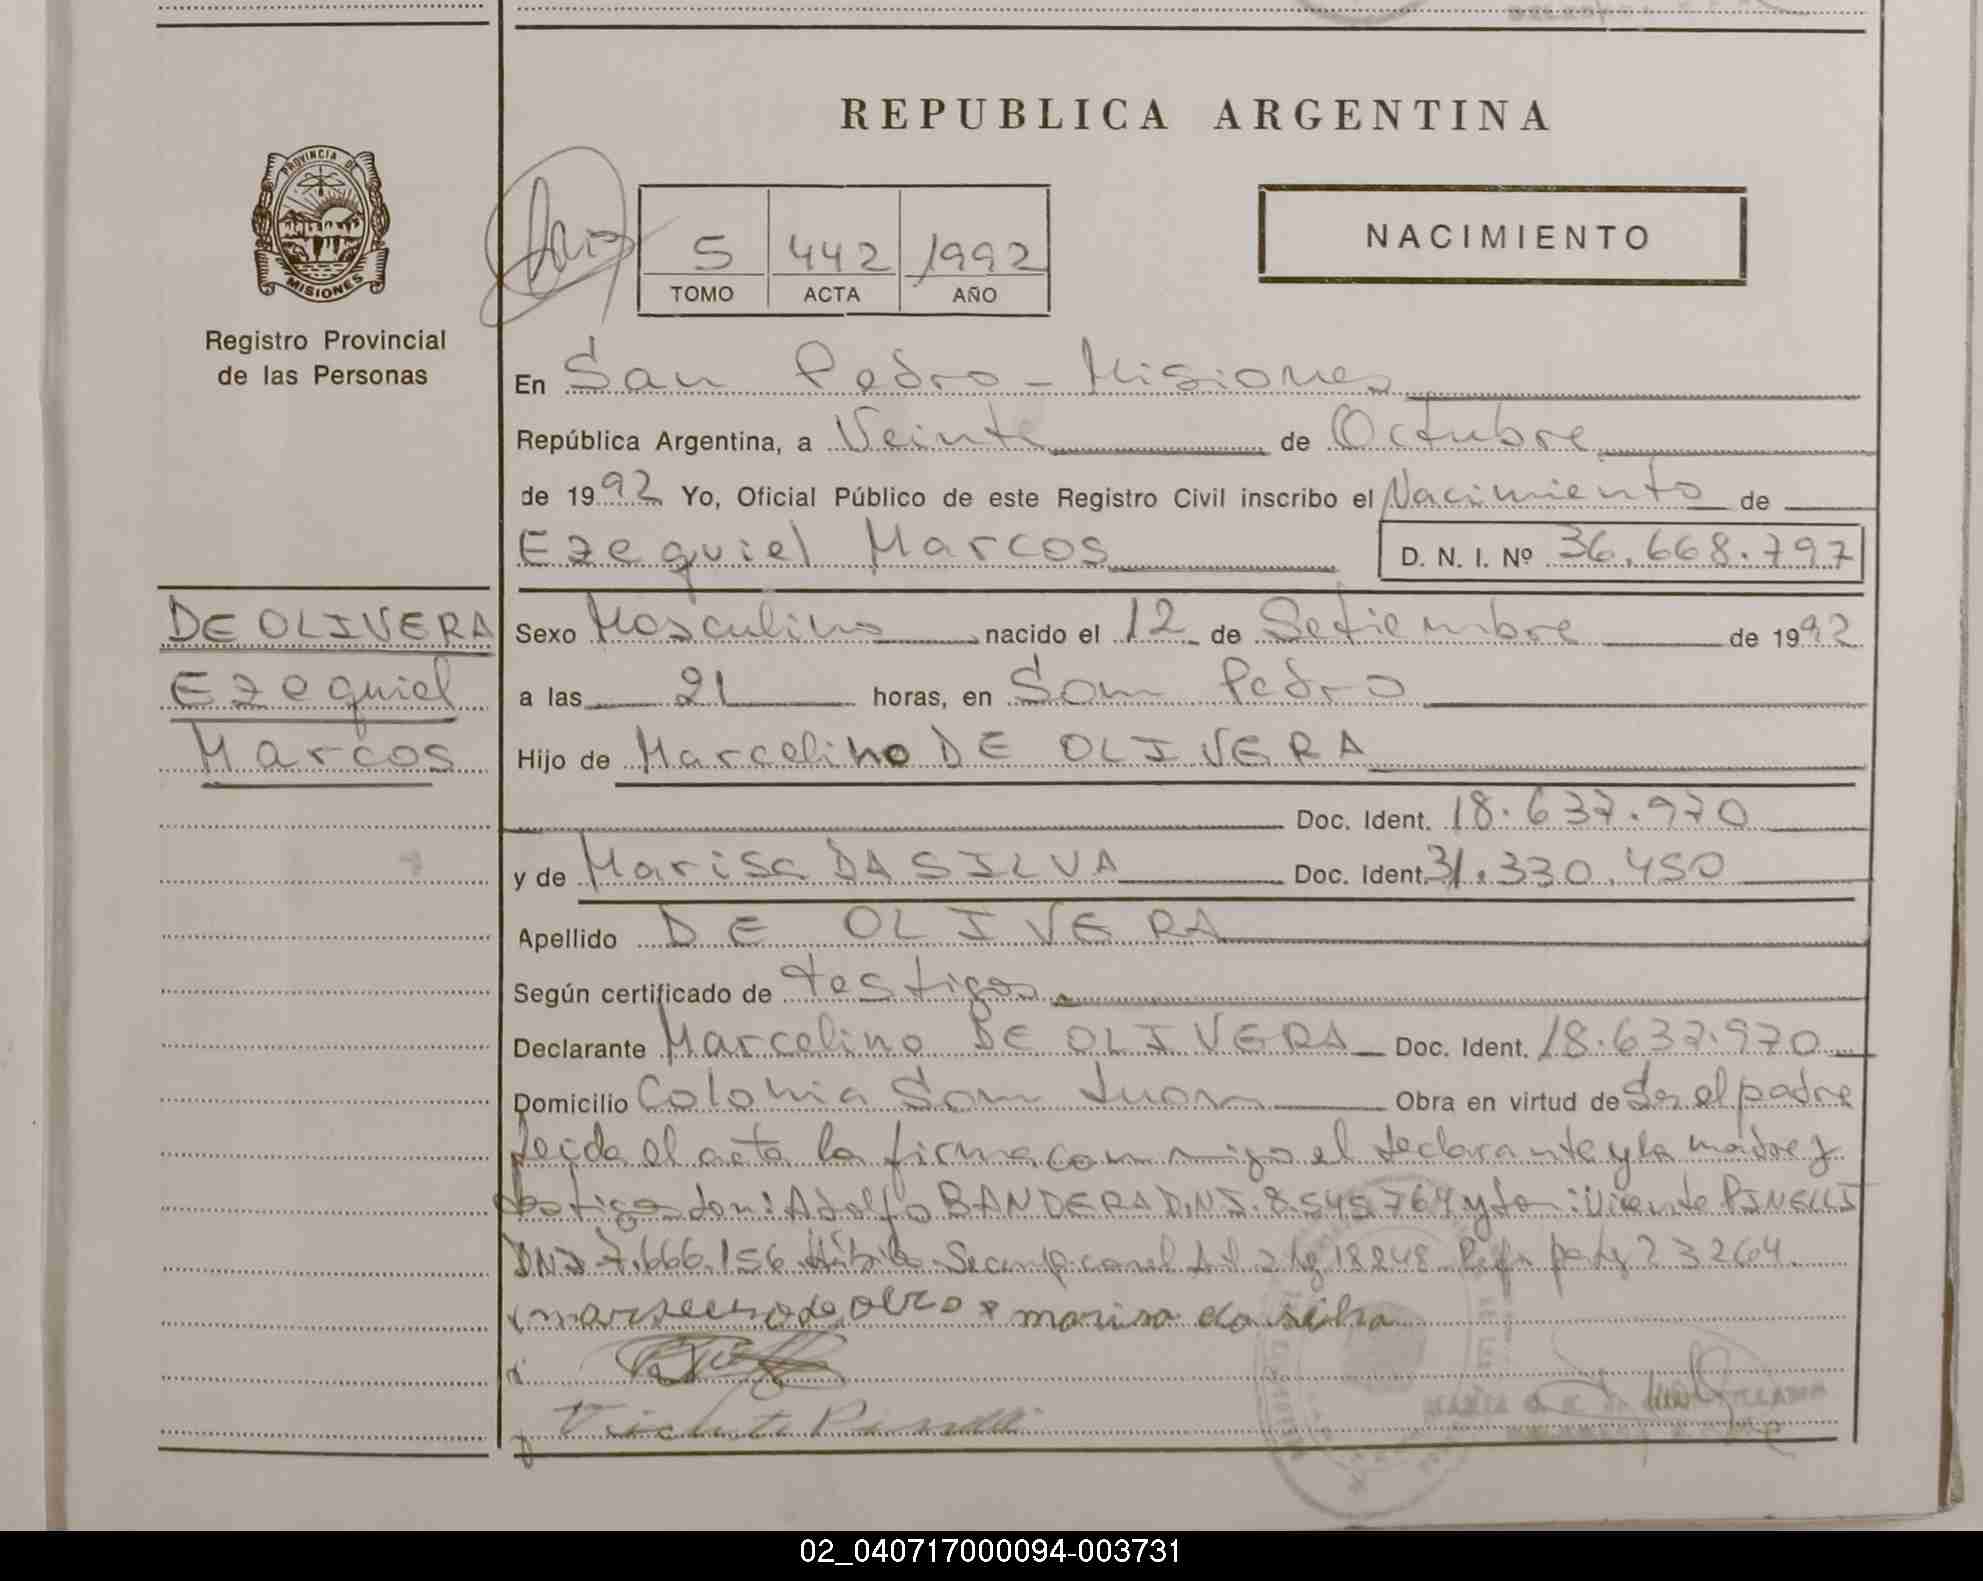 REPUBLICA ARGENTINA
PROVINCIA DE
MISIONES
Registro Provincial
de las Personas
5 442 1992
TOMO ACTA AÑO
NACIMIENTO
En San Pedro - Misiones
República Argentina, a Veinte de Octubre
de 1992 Yo, Oficial Público de este Registro Civil inscribo el Nacimiento de
Ezequiel Marcos D. N. I. Nº 36.668.797
DE OLIVERA
Ezequiel
Marcos
Sexo Masculino nacido el 12 de Setiembre de 1992
a las 21 horas, en San Pedro
Hijo de Marcelino DE OLIVERA
Doc. Ident. 18.637.970
y de Marisa DA SILVA Doc. Ident. 31.330.450
Apellido DE OLIVERA
Según certificado de testigos
Declarante Marcelino DE OLIVERA Doc. Ident. 18.637.970
Domicilio Colonia San Juan Obra en virtud de Ser el padre
Leida el acta la firma conmigo el declarante y la madre y
testigos don: Adolfo BANDERA D.N.I. 8.545.764 y don: Vicente PINELLI
DNI 7.666.156 18248 23264
marisa da silva
Vicente Pinelli
02_040717000094-003731